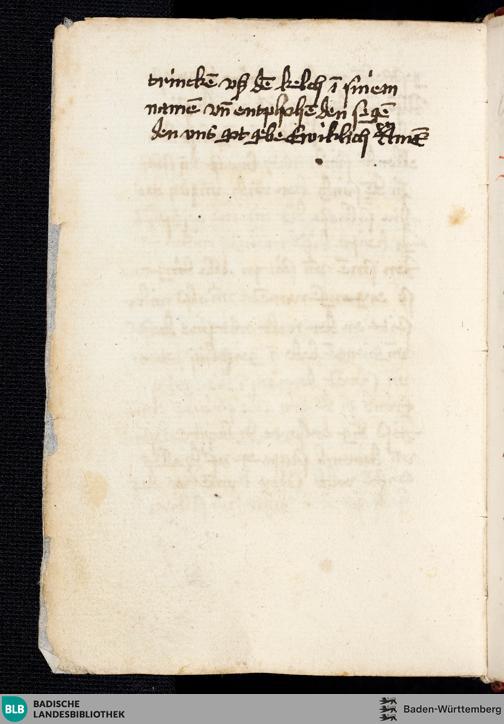 trinckē vß dē kelch ī sinem
namē vn̄ entphohē den segē
den vns got gebe Ewiklich Amē
BLB
BADISCHE
LANDESBIBLIOTHEK
Baden-Württemberg